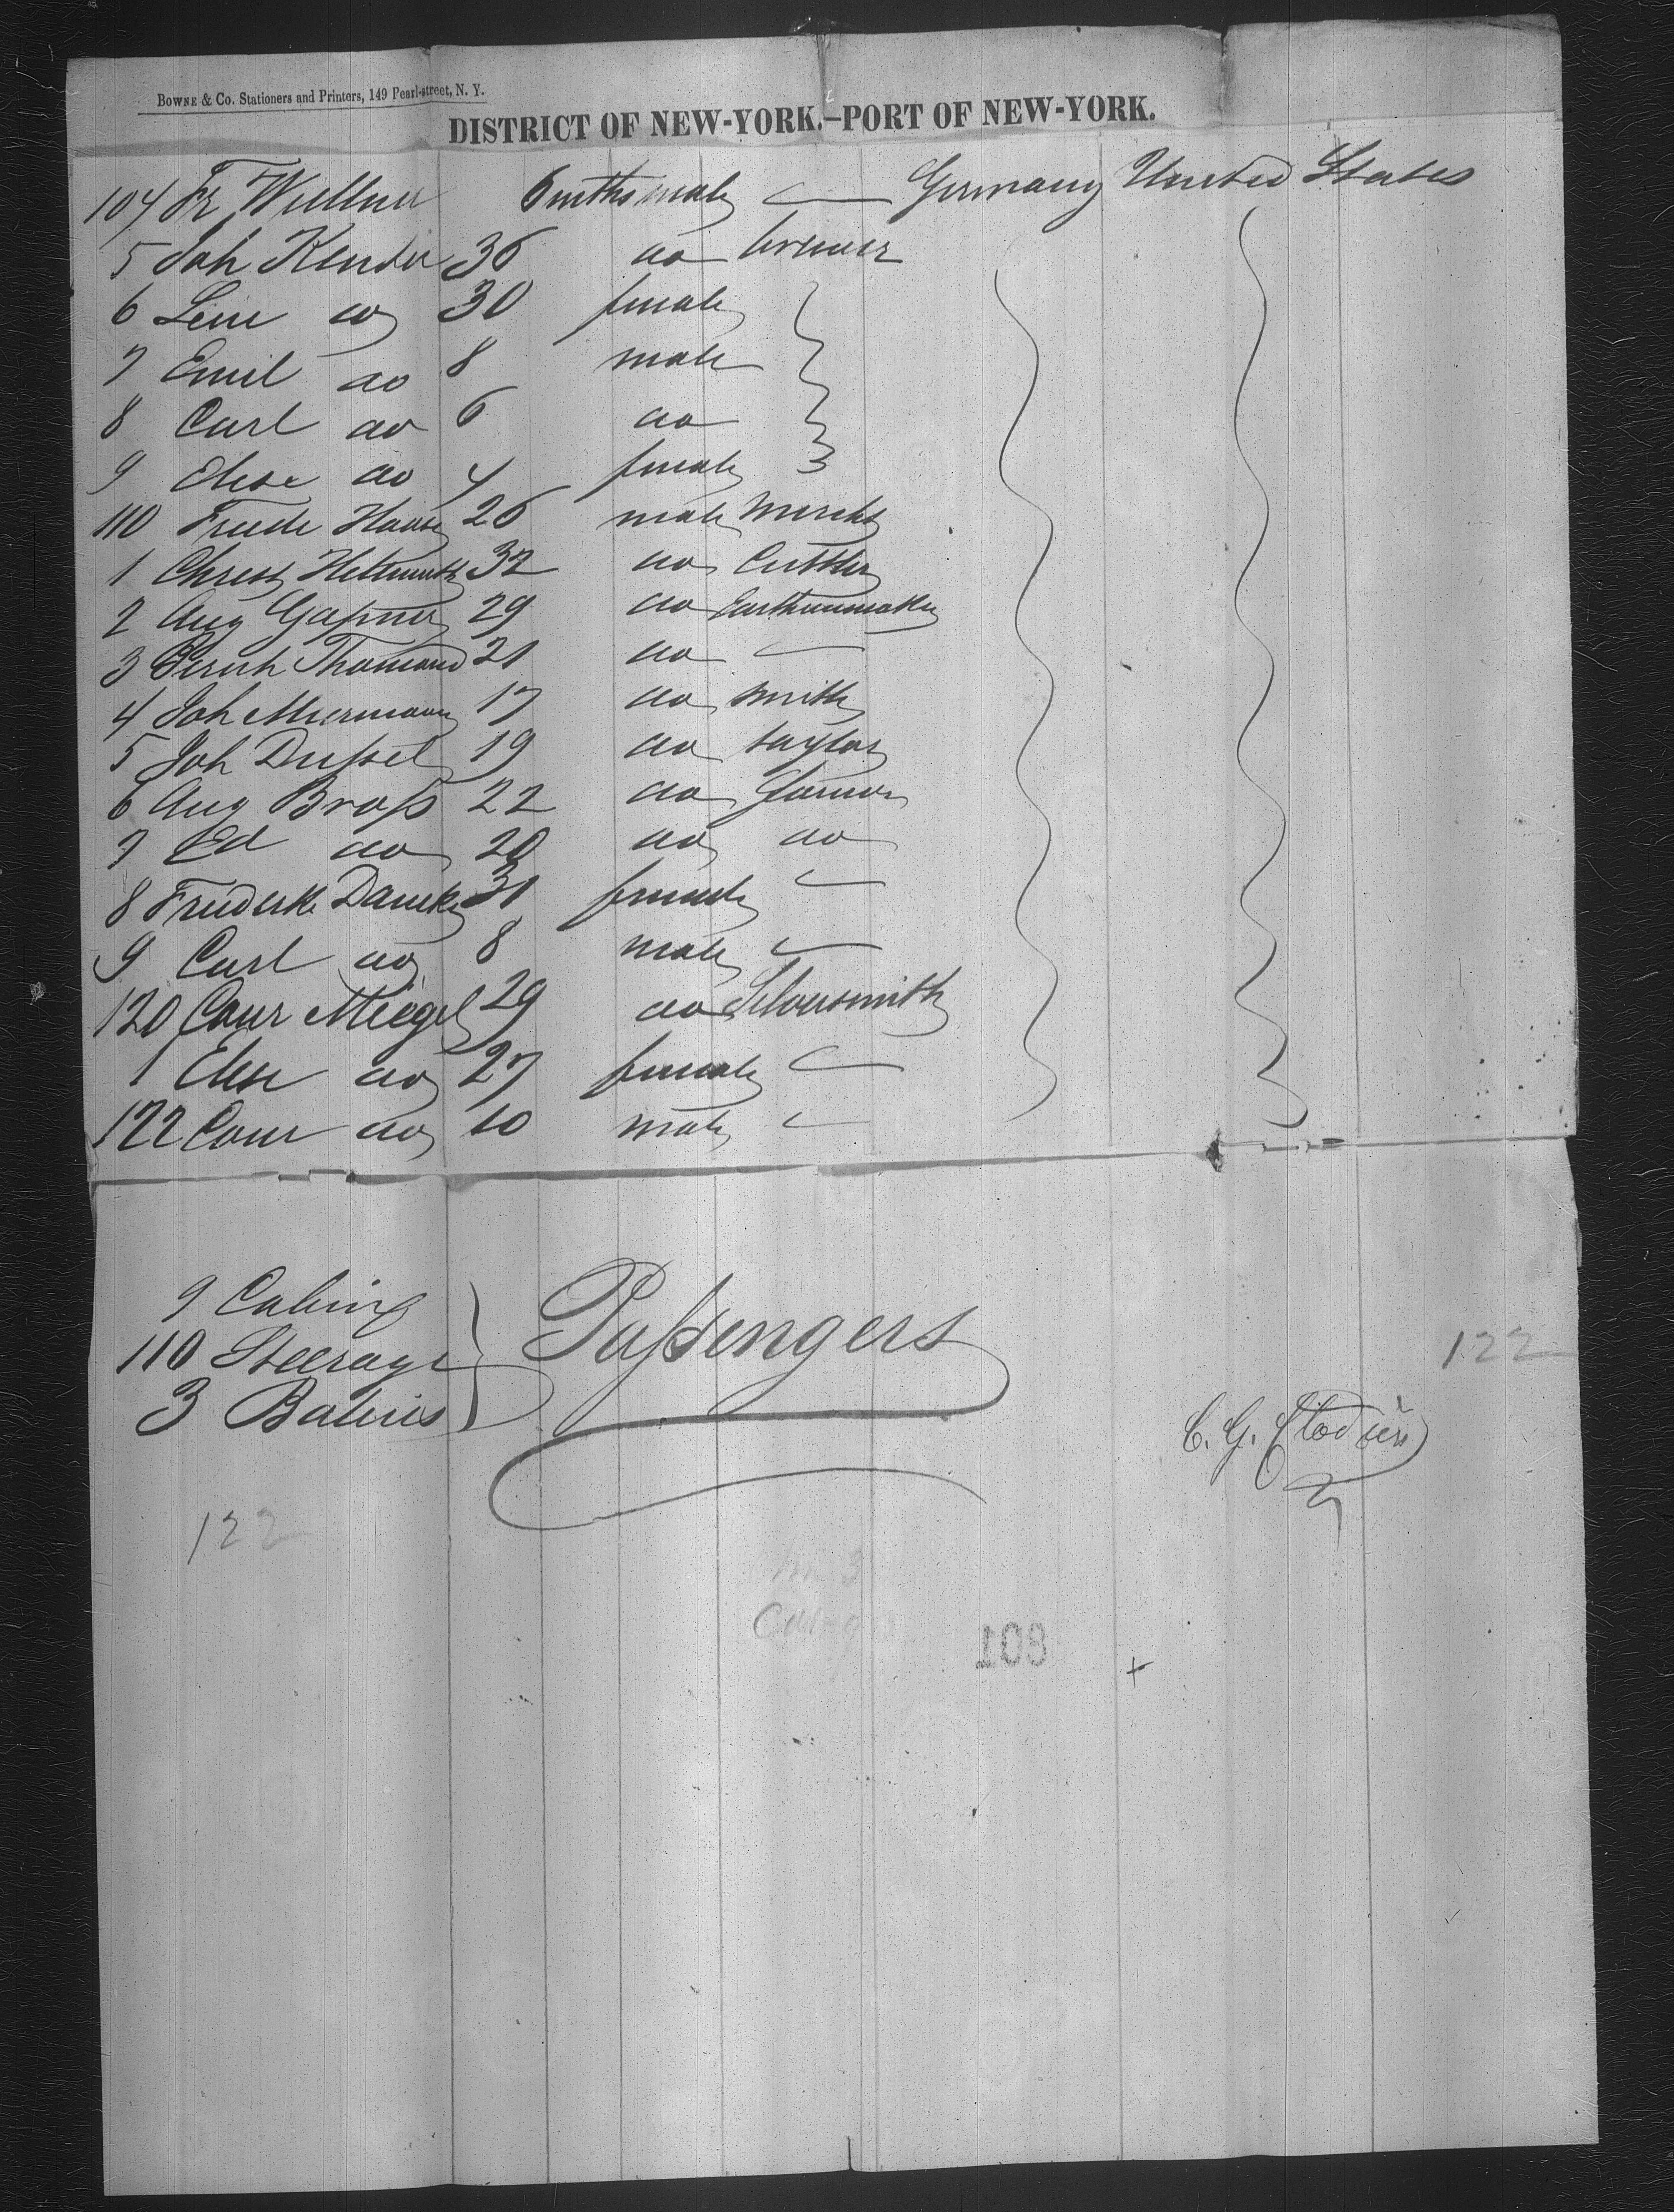 Bowne & Co. Stationers and Printers, 149 Pearl-street, N. Y.
DISTRICT OF NEW-YORK.—PORT OF NEW-YORK.
104 Fr Wullner 6 mths male — Germany United States
5 Joh 36 do
6 Line do 30 female
7 Emil do 8 male
8 Carl do 6 do
9 Elise do 4 female
110 Friede Haase 26 male Mercht
1 Christ Hellmuth 32 do Cuttler
2 Aug 29 do
3 21 do —
4 Joh 17 do smith
5 Joh Dußel 19 do taylor
6 Aug Broß 22 do farmer
7 Ed do 20 do do
8 Friederike 31 female —
9 Carl do 8 male —
120 Conr Miegel 29 do Silversmith
1 Elise do 27 female —
122 Conr do 10 male —
9 Cabin
110 Steerage
3 Babies
Paßengers
122
C. G.
122
108